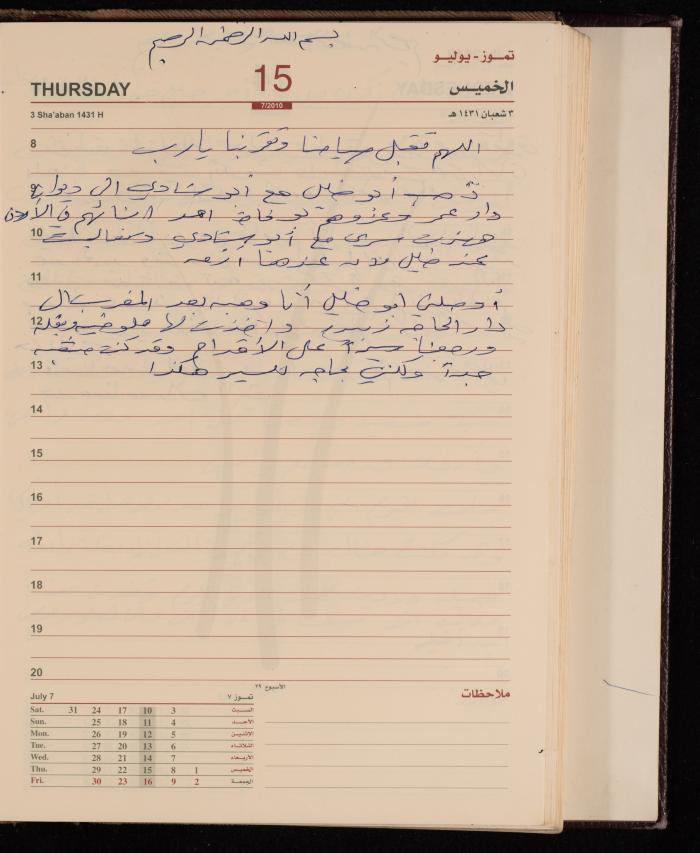 بسم الله الرحمن الرحيم
تمـوز - يوليو
THURSDAY 15 الخميس
7/2010
3 Sha'aban 1431 H ٣ شعبان ١٤٣١ هـ
8
اللهم تقبل صيامنا وتقربنا يا رب
9
ذهب أبو خليل مع أبو شادي الى ديوان
دار عمر وعزوهم بوفاة احمد في الأردن
10
سرى مع أبو شادي
عند خليل لانه عندهنا
11
أوصلني ابو خليل أنا وهبه بعد المغرب ال
12
دار الحاجه زينب واخذت لها ملوخيه وبقله
ورجعنا سيراً على الأقدام وقد كنت متعبه
13
جداً ولكني بحاجه للسير هكذا
14
15
16
17
18
19
20
الأسبوع ٢٩
July 7 تمـوز ٧
ملاحظات
Sat. 31 24 17 10 3 السبت
Sun. 25 18 11 4 الأحـد
Mon. 26 19 12 5 الإثنين
Tue. 27 20 13 6 الثلاثاء
Wed. 28 21 14 7 الأربعاء
Thu. 29 22 15 8 1 الخميس
Fri. 30 23 16 9 2 الجمعة